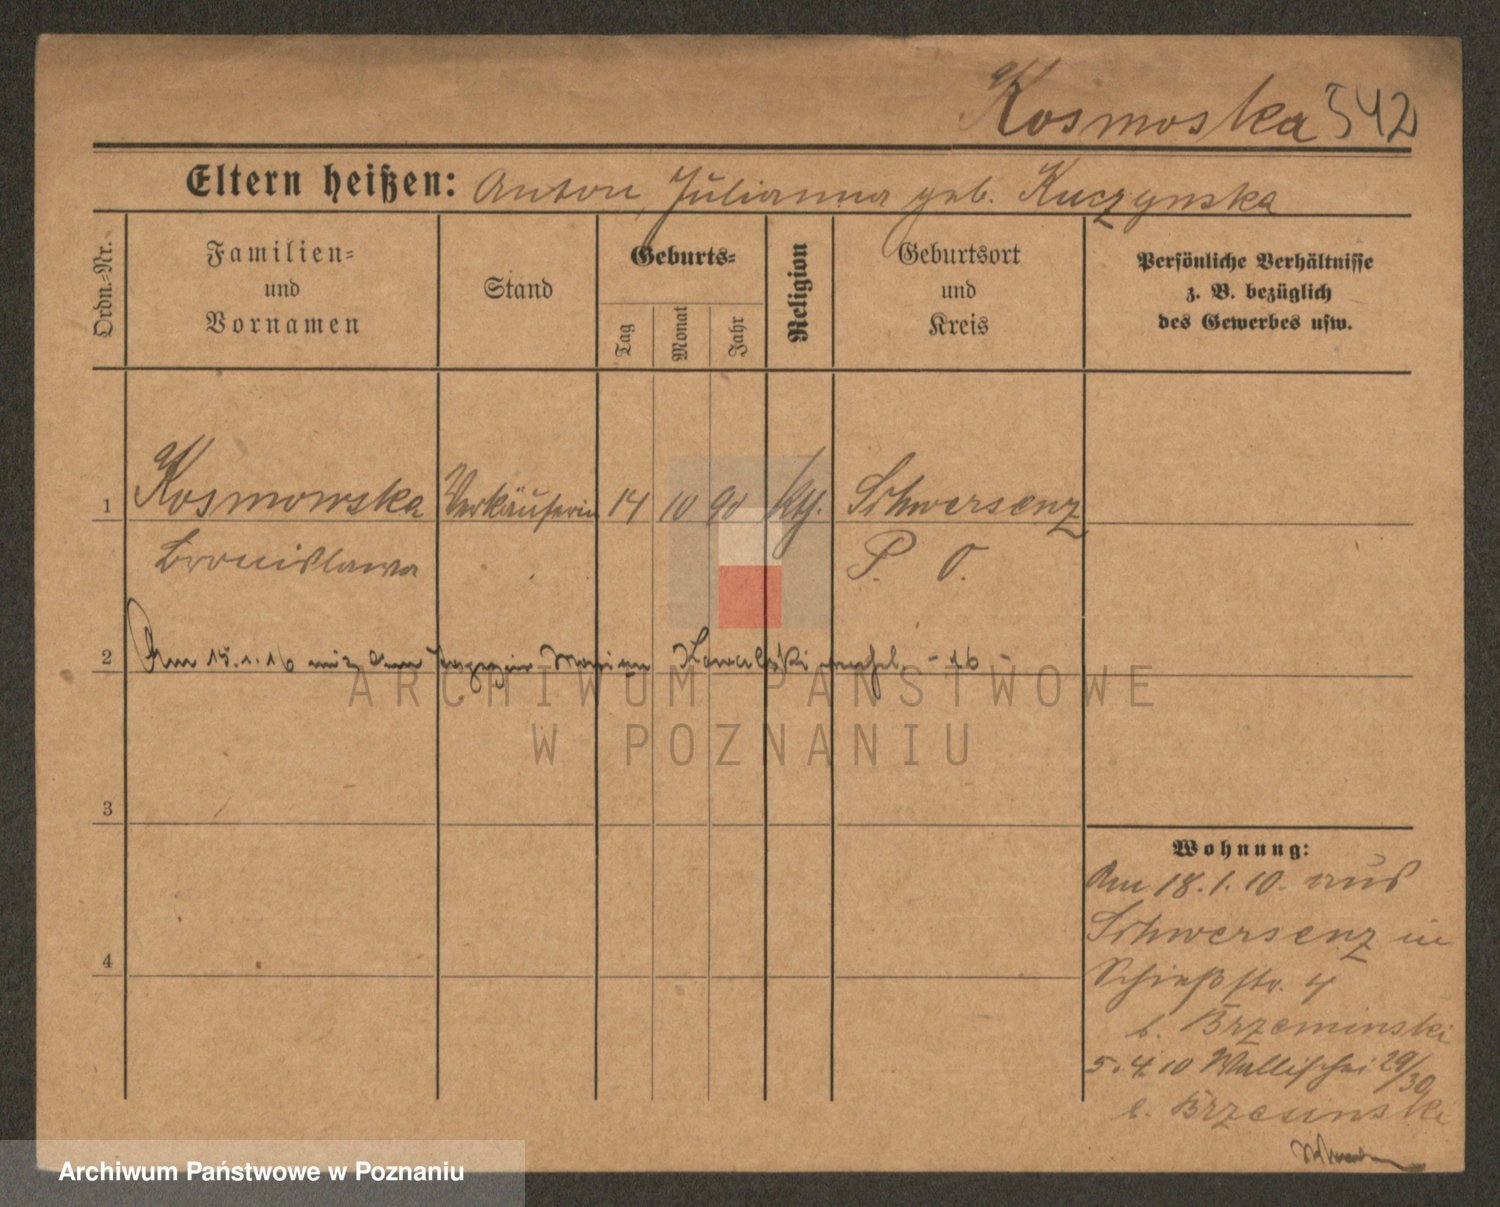 Kosmoska 542
Eltern heißen: Anton, Julianna geb. Kuczynska
Ordn.-Nr.
Familien-
und
Vornamen
Stand
Geburts-
Tag
Monat
Jahr
Religion
Geburtsort
und
Kreis
Persönliche Verhältnisse
z. B. bezüglich
des Gewerbes usw.
1 Kosmowska Verkäuferin 14 10 90 kth. Schwersenz
Bronislawa P. O.
2 Am 15.1.16 mit dem Marian Kowalski verehel. - 16 -
3
4
Wohnung:
Am 18.1.10. aus
Schwersenz in
Schießstr. 4
b. Brzeminski
5.4.10 Wallischei 29/30
b. Brzesinski
ARCHIWUM PAŃSTWOWE
W POZNANIU
Archiwum Państwowe w Poznaniu